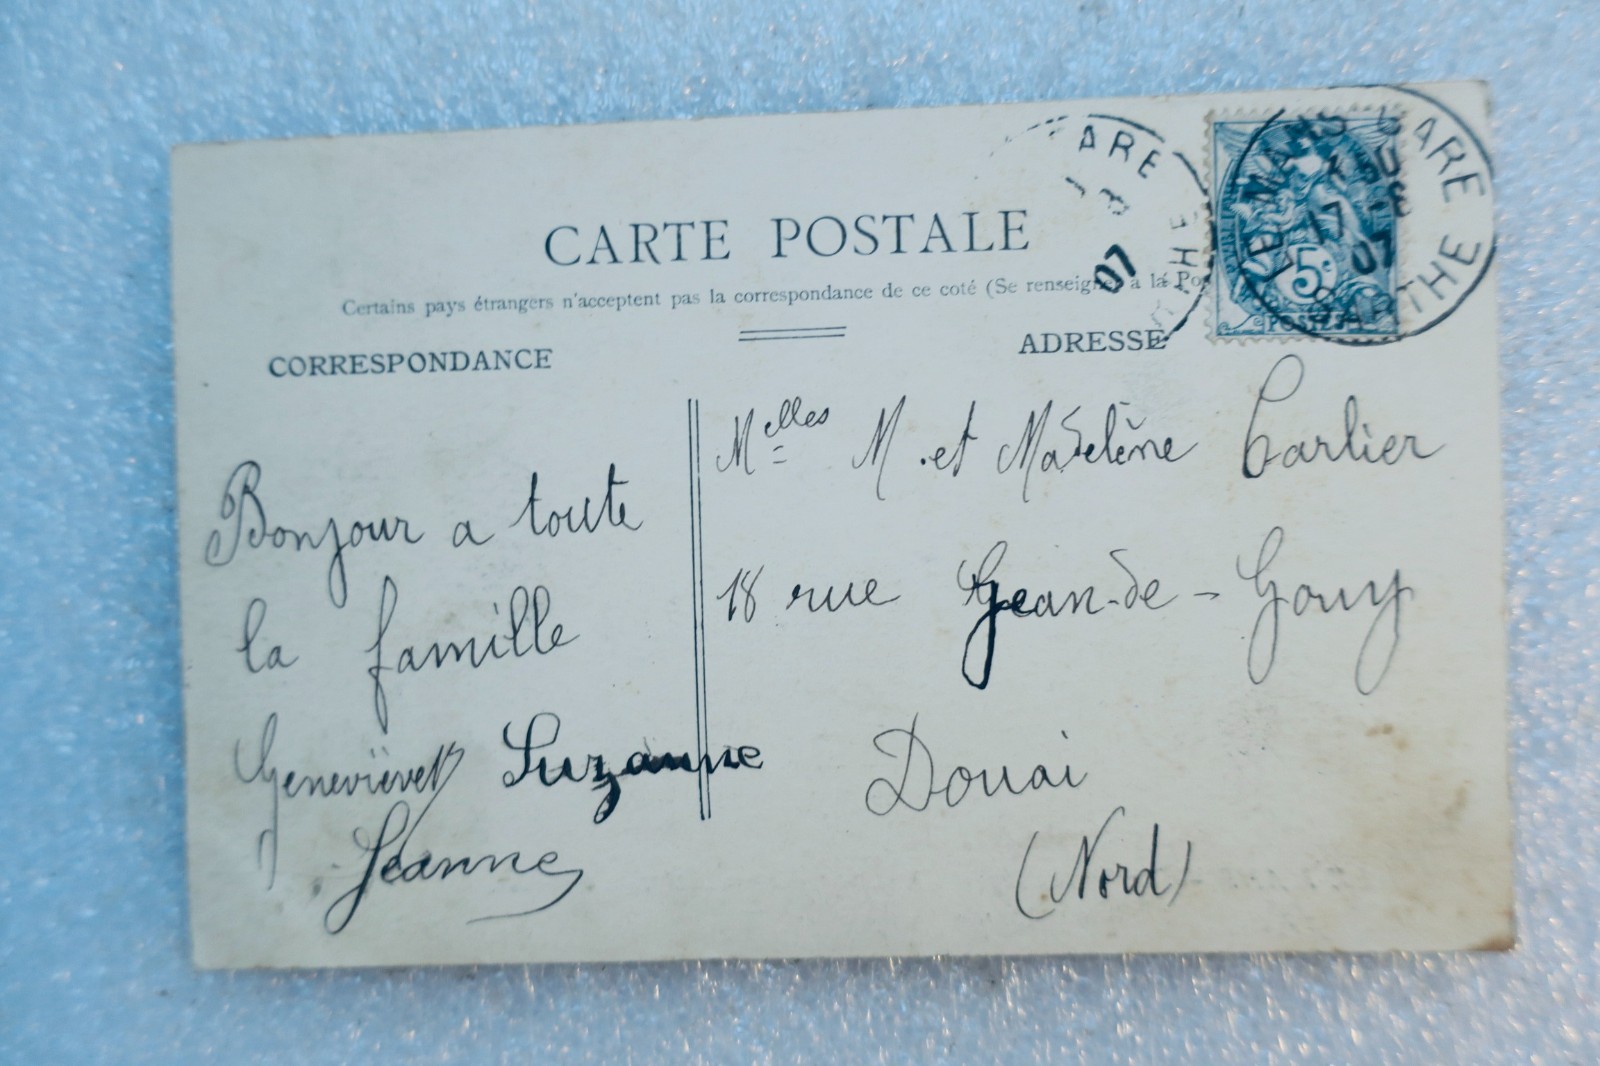 CARTE POSTALE
Certains pays étrangers n'acceptent pas la correspondance de ce coté (Se renseigner à la Po
CORRESPONDANCE
ADRESSE
Bonjour a toute
la famille
Geneviève Suzanne
Jeanne
Melles M. et Madelène Carlier
18 rue Jean-de-Gouy
Douai
(Nord)
LE MANS GARE
17
07
SARTHE
5c
POSTES
ARE
07
THE